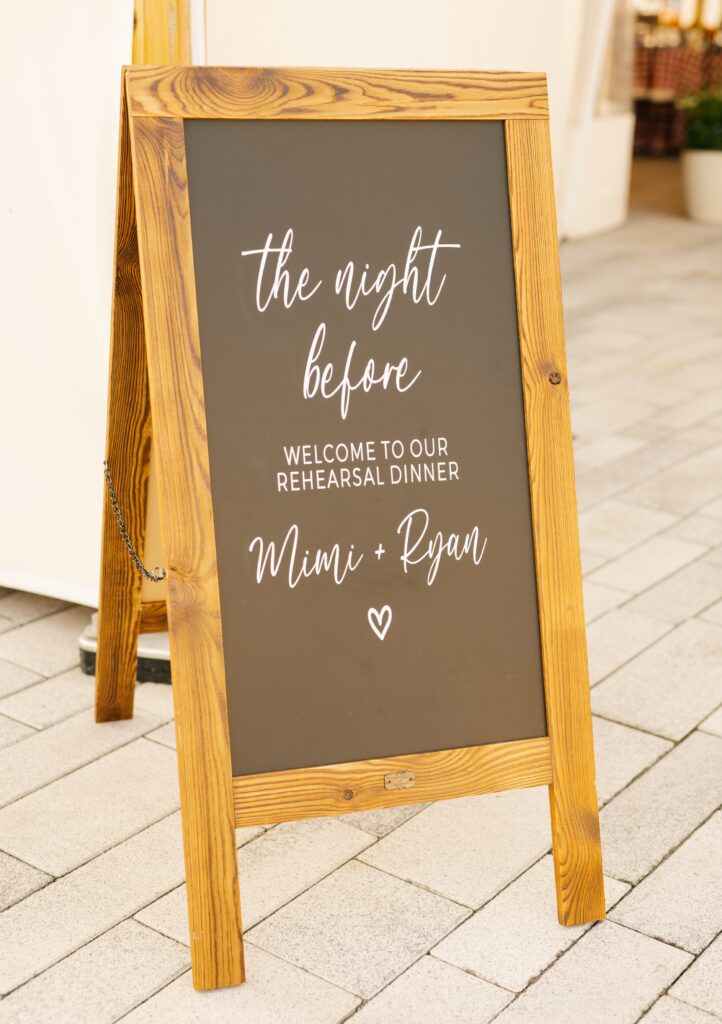 the night
before
WELCOME TO OUR
REHEARSAL DINNER
Mimi + Ryan